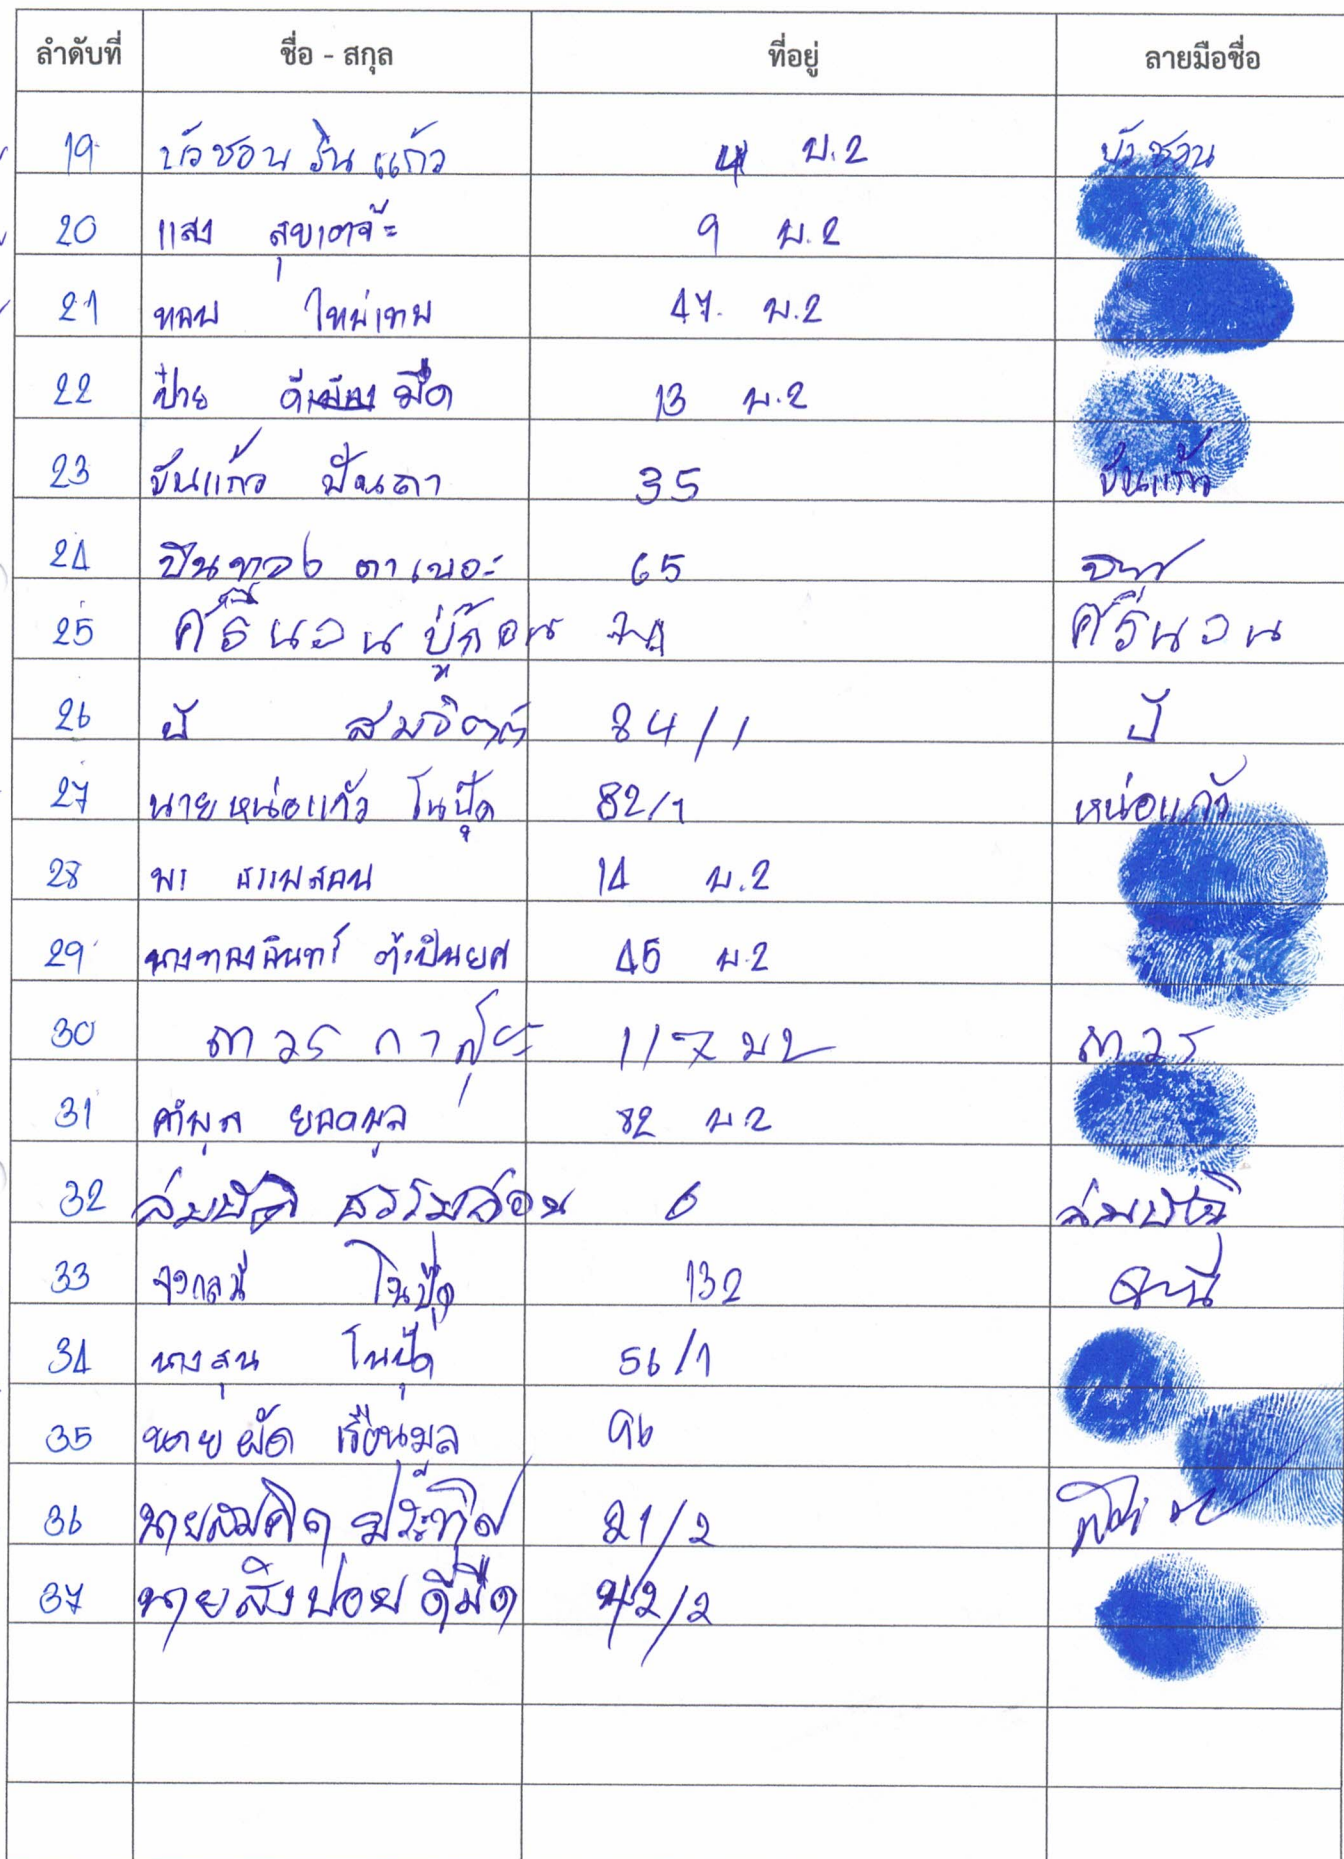 ลำดับที่ ชื่อ - สกุล ที่อยู่ ลายมือชื่อ
19 บัวชอน รินแก้ว 4 ม.2 บัวชอน
20 แสง สุขเตจ๊ะ 9 ม.2
21 ใหม่เทพ 47 ม.2
22 ป้าย ดีมืด 13 ม.2
23 จันแก้ว ปันถา 35 จันแก้ว
24 ปันทอง 65
25 ศรีนวน ปู่ก้อน ศรีนวน
26 ปี สมจิตต์ 84/1 ปี
27 นายหน่อแก้ว โนปุ๊ด 82/1 หน่อแก้ว
28 พร ธรรมสอน 14 ม.2
29 นางทองอินทร์ ต๊ะปินยศ 45 ม.2
30 ถาวร 117 ม2 ถาวร
31 คำมูล ยอดมูล 82 ม.2
32 สมบัติ ธรรมสอน 6 สมบัติ
33 โนปุ๊ด 132
34 นางสุน โนปุ๊ด 56/1
35 นายผัด เรือนมูล 96
36 นายสมคิด 21/2
37 นายสิงปอย ดีมืด 42/2